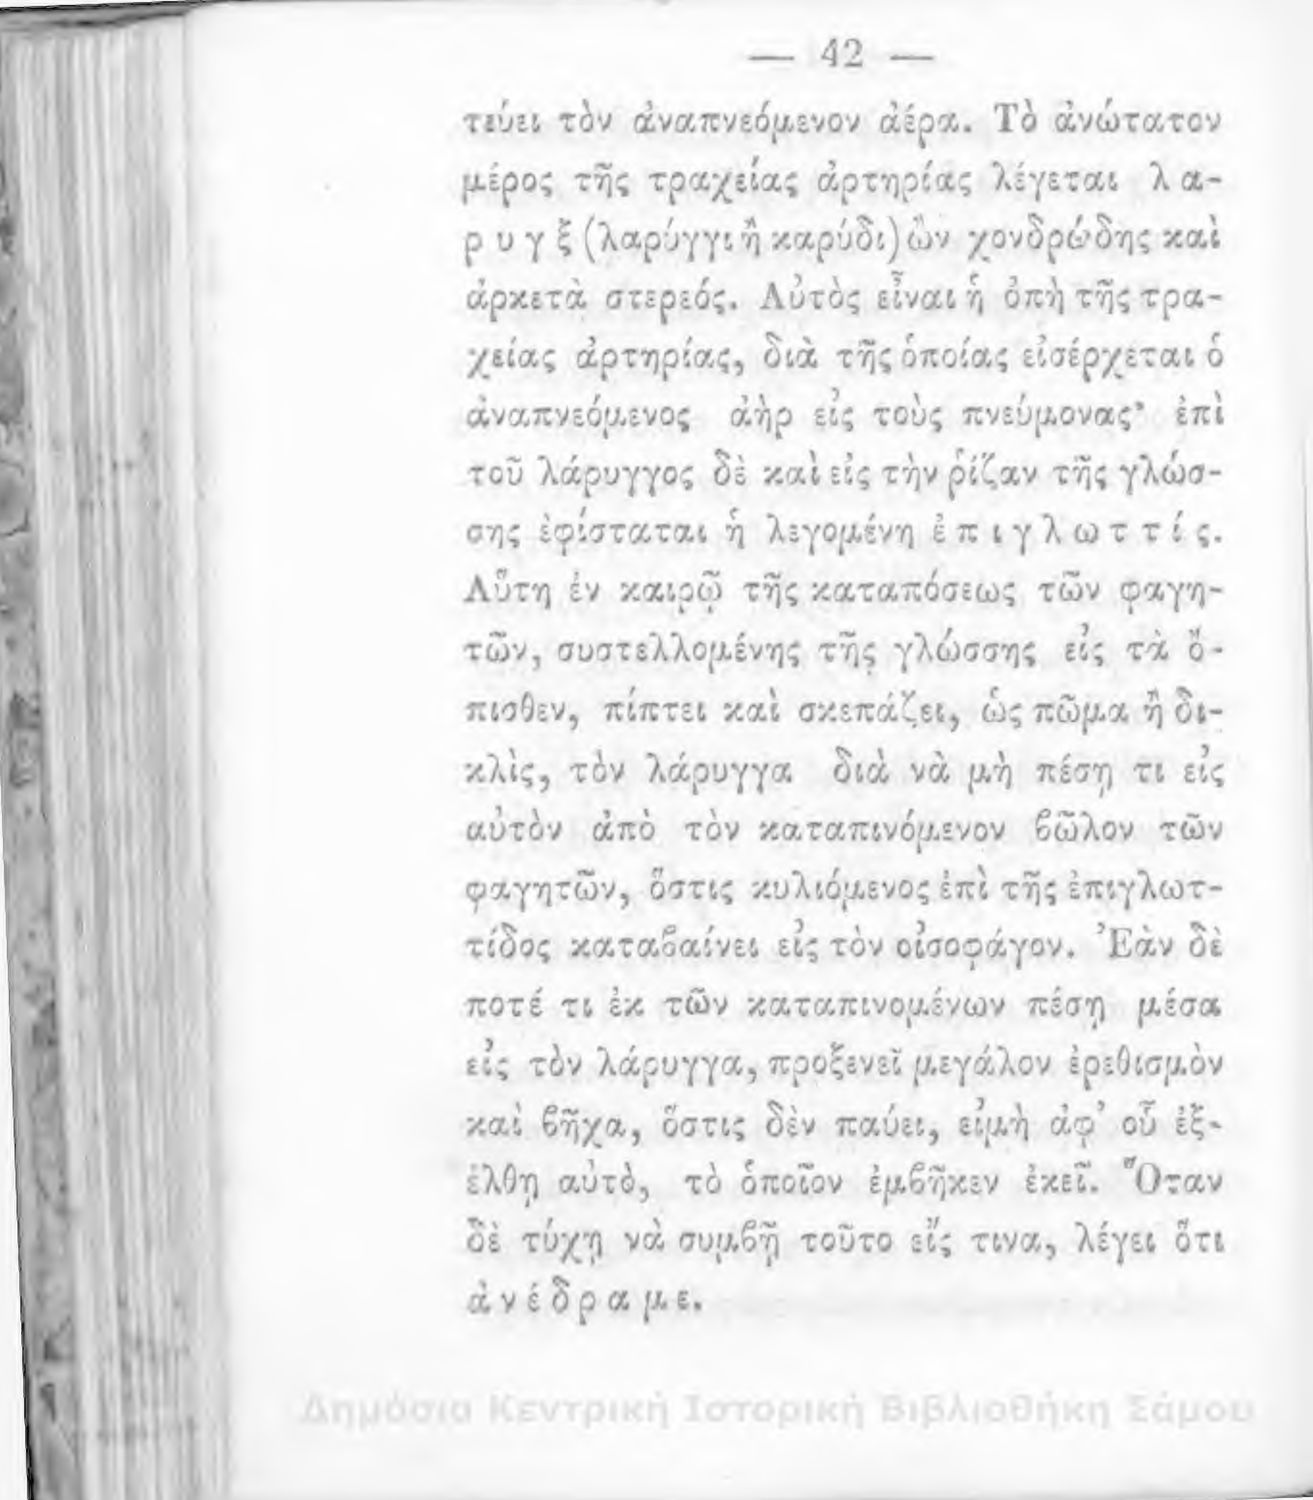 — 42 —
τεύει τὸν ἀναπνεόμενον ἀέρα. Τὸ ἀνώτατον
μέρος τῆς τραχείας ἀρτηρίας λέγεται λ α-
ρ υ γ ξ (λαρύγγι ἢ καρύδι) ὢν χονδρώδης καὶ
ἀρκετὰ στερεός. Αὐτὸς εἶναι ἡ ὀπὴ τῆς τρα-
χείας ἀρτηρίας, διὰ τῆς ὁποίας εἰσέρχεται ὁ
ἀναπνεόμενος ἀὴρ εἰς τοὺς πνεύμονας· ἐπὶ
τοῦ λάρυγγος δὲ καὶ εἰς τὴν ῥίζαν τῆς γλώσ-
σης ἐφίσταται ἡ λεγομένη ἐ π ι γ λ ω τ τ ί ς.
Αὕτη ἐν καιρῷ τῆς καταπόσεως τῶν φαγη-
τῶν, συστελλομένης τῆς γλώσσης εἰς τὰ ὄ-
πισθεν, πίπτει καὶ σκεπάζει, ὡς πῶμα ἢ δι-
κλὶς, τὸν λάρυγγα διὰ νὰ μὴ πέσῃ τι εἰς
αὐτὸν ἀπὸ τὸν καταπινόμενον βῶλον τῶν
φαγητῶν, ὅστις κυλιόμενος ἐπὶ τῆς ἐπιγλωτ-
τίδος καταβαίνει εἰς τὸν οἰσοφάγον. Ἐὰν δὲ
ποτέ τι ἐκ τῶν καταπινομένων πέσῃ μέσα
εἰς τὸν λάρυγγα, προξενεῖ μεγάλον ἐρεθισμὸν
καὶ βῆχα, ὅστις δὲν παύει, εἰμὴ ἀφ’ οὗ ἐξ-
έλθῃ αὐτὸ, τὸ ὁποῖον ἐμβῆκεν ἐκεῖ. Ὅταν
δὲ τύχῃ νὰ συμβῇ τοῦτο εἴς τινα, λέγει ὅτι
ἀ ν έ δ ρ α μ ε.
Δημόσια Κεντρική Ιστορική Βιβλιοθήκη Σάμου